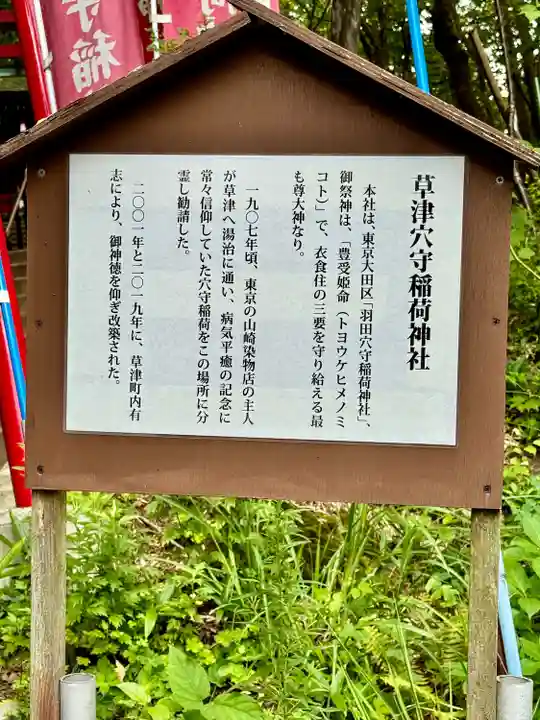 草津穴守稲荷神社
本社は、東京大田区「羽田穴守稲荷神社」、
御祭神は、「豊受姫命(トヨウケヒメノミ
コト)」で、衣食住の三要を守り給える最
も尊大神なり。
一九〇七年頃、東京の山崎染物店の主人
が草津へ湯治に通い、病気平癒の記念に
常々信仰していた穴守稲荷をこの場所に分
霊し勧請した。
二〇〇一年と二〇一九年に、草津町内有
志により、御神徳を仰ぎ改築された。
稲